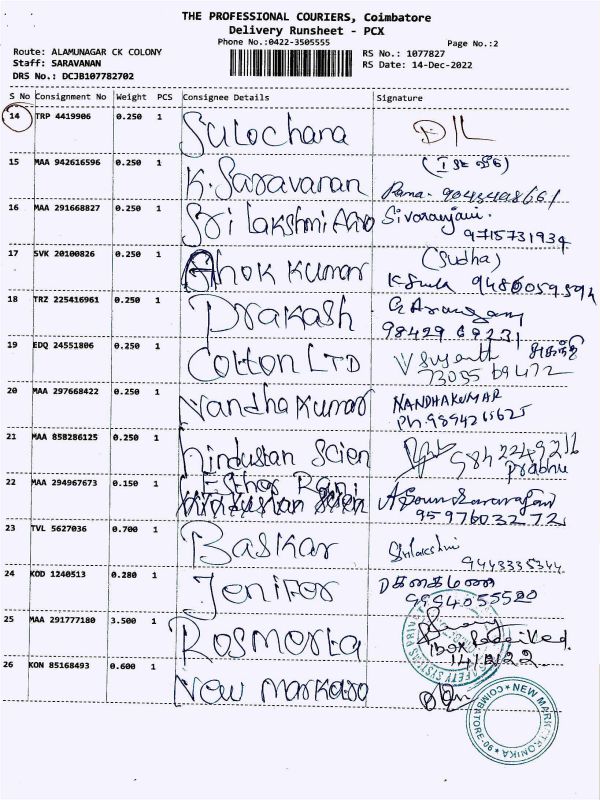 THE PROFESSIONAL COURIERS, Coimbatore
Delivery Runsheet - PCX
Phone No.:0422-3505555 Page No.:2
Route: ALAMUNAGAR CK COLONY RS No.: 1077827
Staff: SARAVANAN RS Date: 14-Dec-2022
DRS No.: DCJB107782702
S No Consignment No Weight PCS Consignee Details Signature
14 TRP 4419906 0.250 1 Sulochana
15 MAA 942616596 0.250 1 K. Saravanan
16 MAA 291668827 0.250 1 Sri Lakshmi Sivaranjani.
9715731934
17 SVK 20100826 0.250 1 Ashok Kumar (Sudha)
9486059594
18 TRZ 225416961 0.250 1 Prakash
98429 69231
19 EDQ 24551806 0.250 1 Cotton LTD
73055 69472
20 MAA 297668422 0.250 1 Nandha Kumar NANDHAKUMAR
Ph 9894265625
21 MAA 858286125 0.250 1 hindustan Scien
Prabhu
22 MAA 294967673 0.150 1 Esthor Rani
9597603272
23 TVL 5627036 0.700 1 Baskar Srilakshmi
9443335344
24 KOD 1240513 0.280 1 Jenifor
9994055520
25 MAA 291777180 3.500 1 Rosmerta
1box Received.
14/12/22.
26 KON 85168493 0.600 1 New Markaro
NEW MARK
COIMBATORE-06